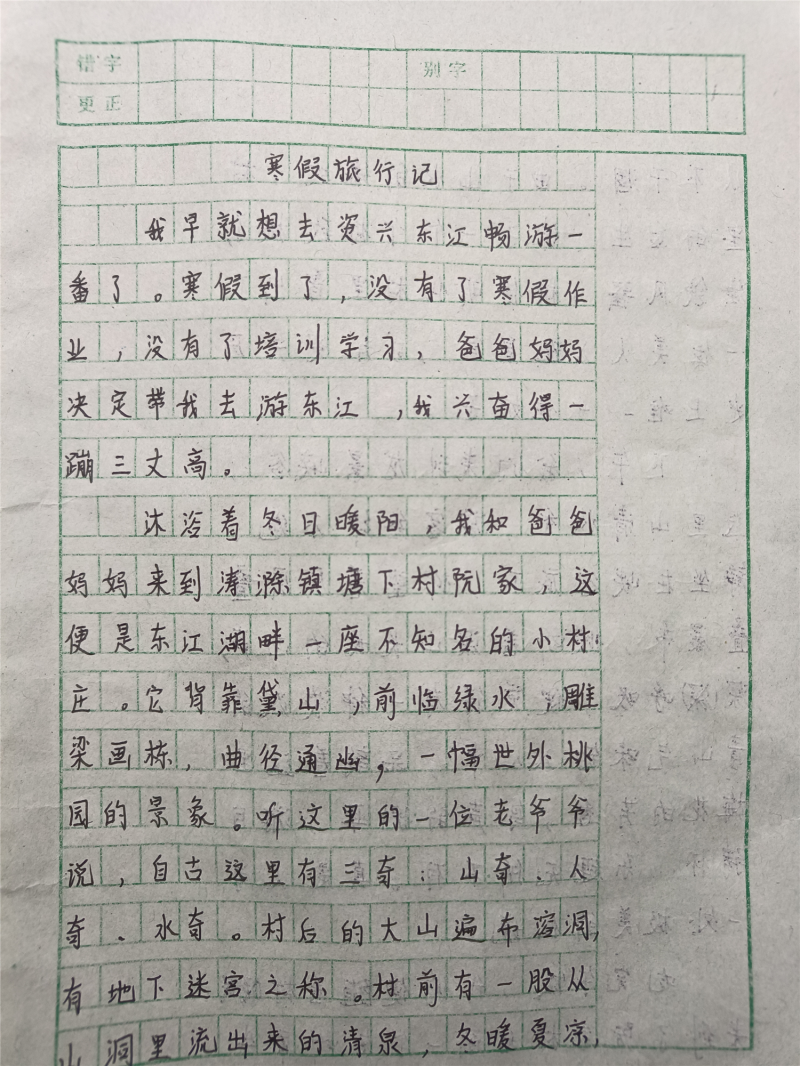 错字 别字
更正
寒假旅行记
我早就想去资兴东江畅游一
番了。寒假到了，没有了寒假作
业，没有了培训学习，爸爸妈妈
决定带我去游东江，我兴奋得一
蹦三丈高。
沐浴着冬日暖阳，我和爸爸
妈妈来到涛滁镇塘下村阮家，这
便是东江湖畔一座不知名的小村
庄。它背靠黛山，前临绿水，雕
梁画栋，曲径通幽，一幅世外桃
园的景象。听这里的一位老爷爷
说，自古这里有三奇：山奇、人
奇、水奇。村后的大山遍布溶洞，
有地下迷宫之称。村前有一股从
山洞里流出来的清泉，冬暖夏凉，